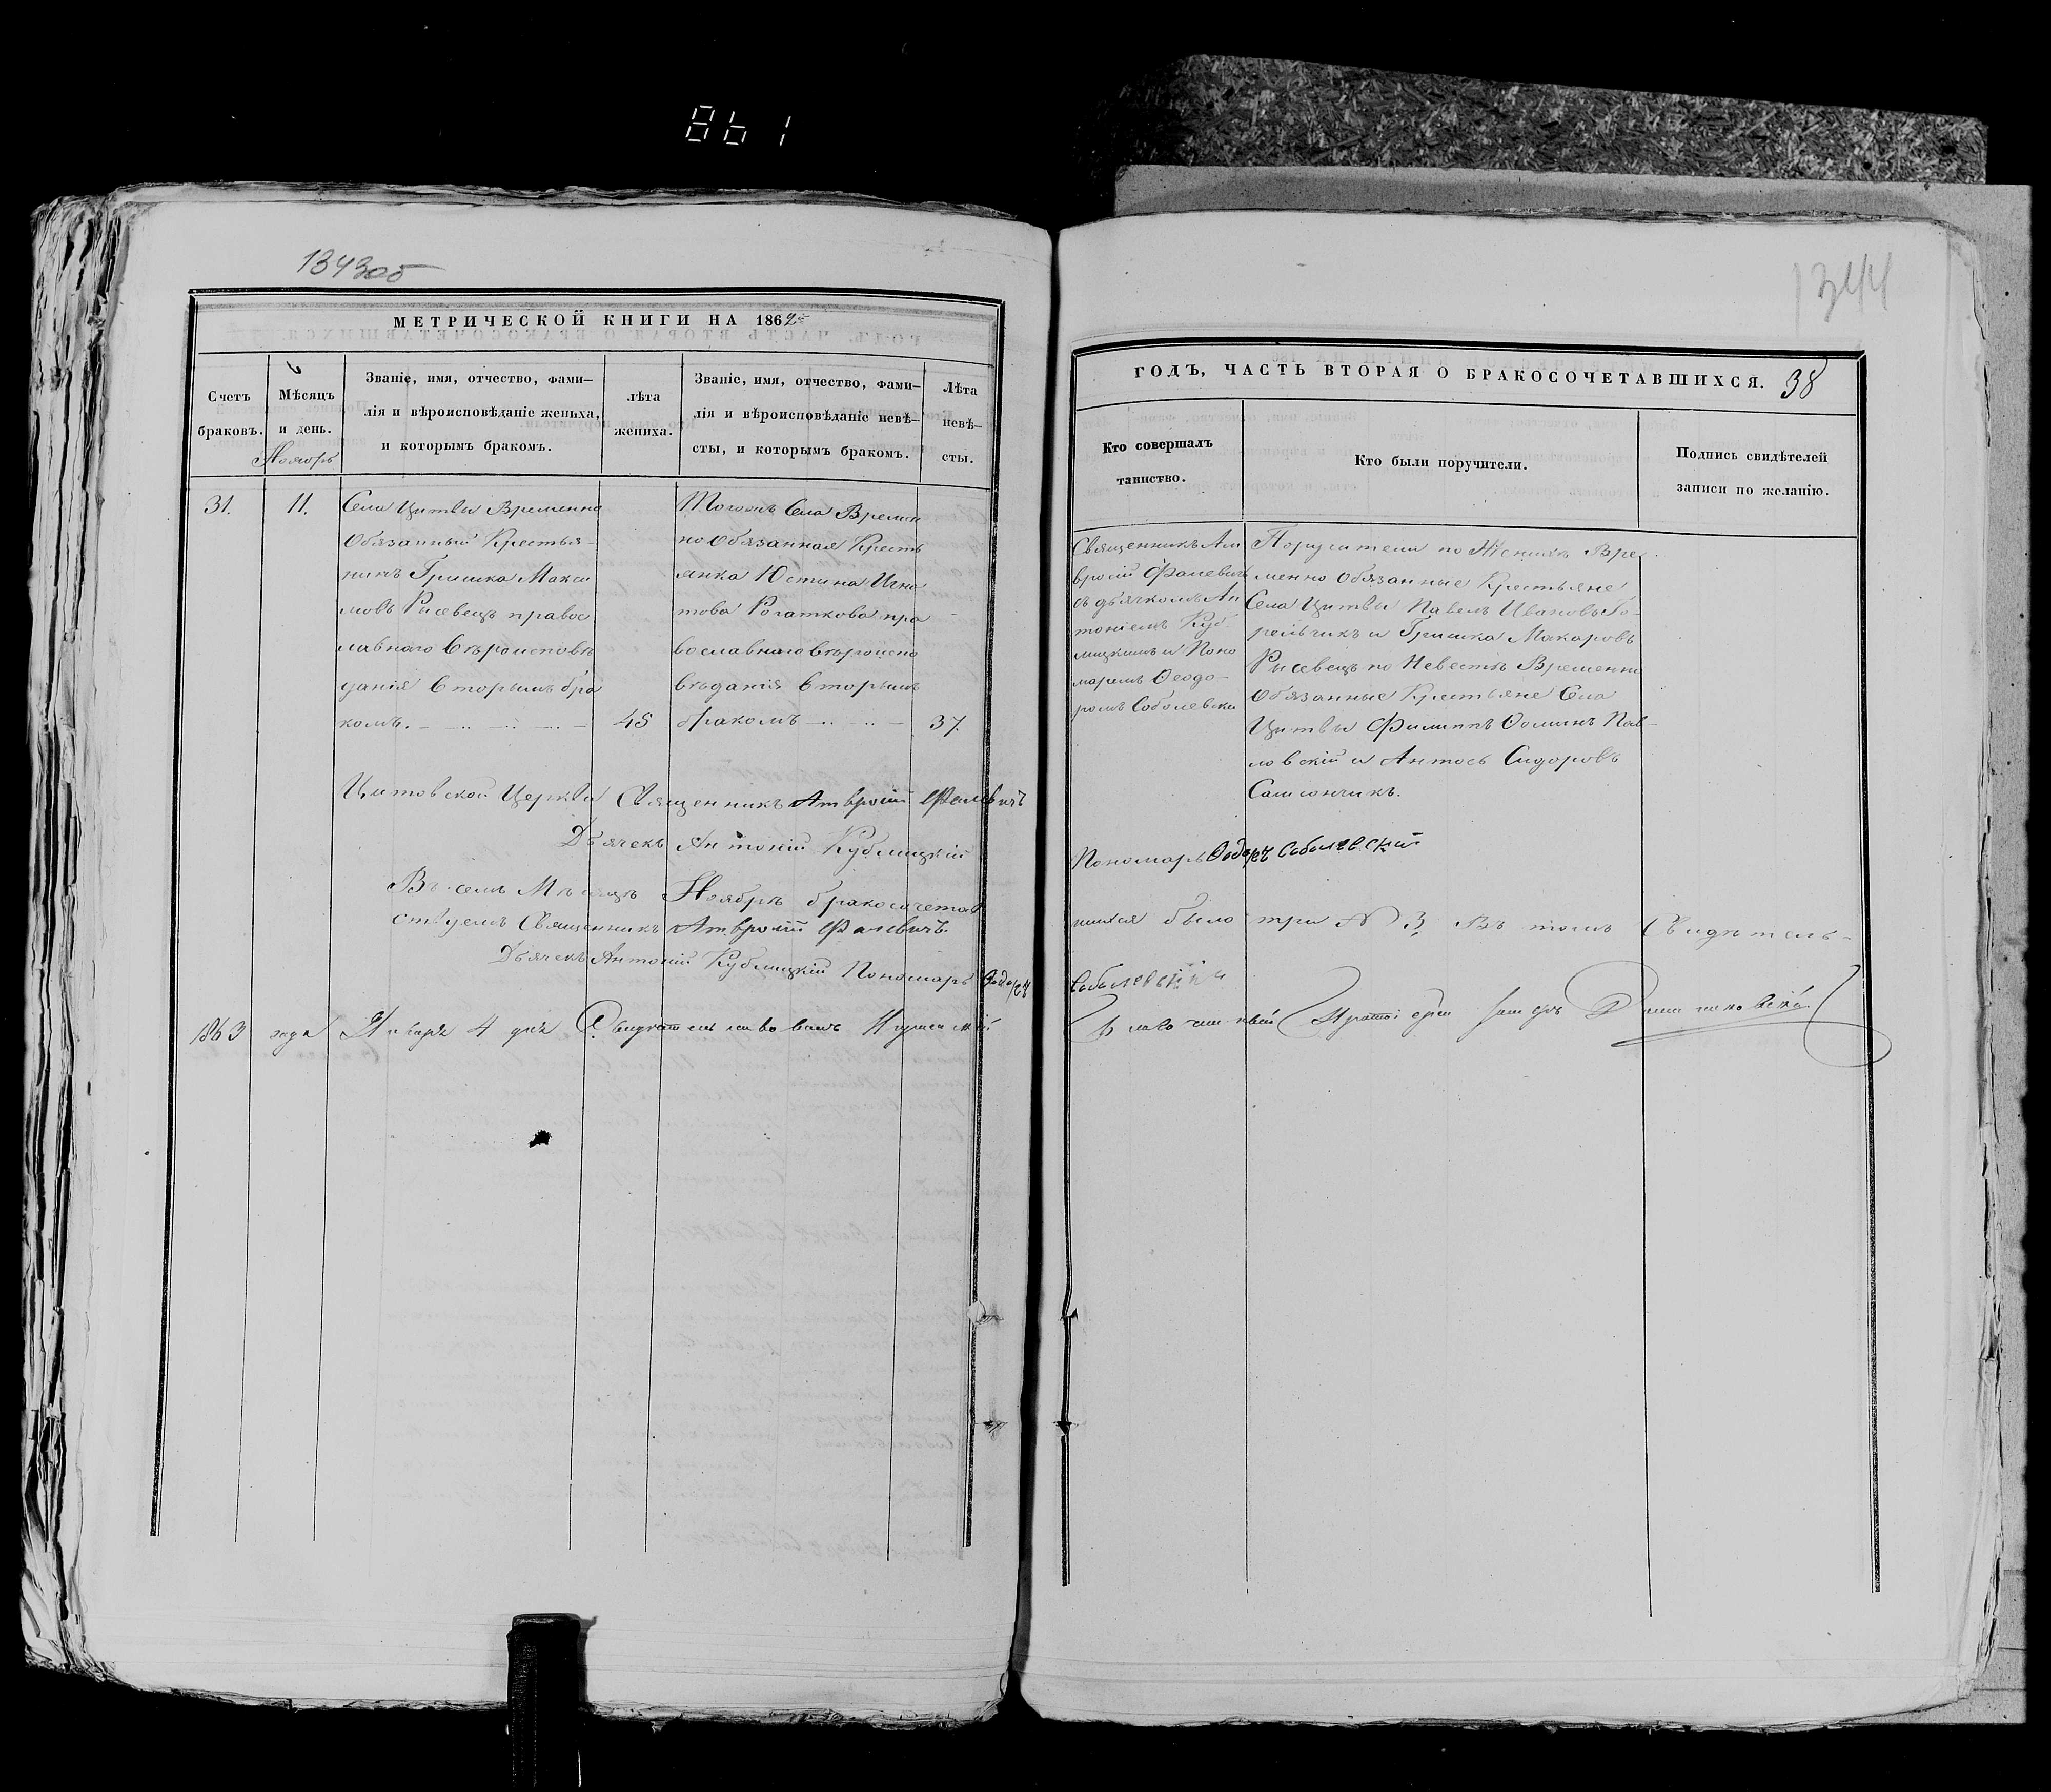 861
1343об
МЕТРИЧЕСКОЙ КНИГИ НА 1862й
Счетъ браковъ.
Мѣсяцъ и день.
Ноябрь
Званіе, имя, отчество, фами-
лія и вѣроисповѣданіе жениха,
и которымъ бракомъ.
лѣта
жениха.
Званіе, имя, отчество, фами-
лія и вѣроисповѣданіе невѣ-
сты, и которымъ бракомъ.
Лѣта
невѣ-
сты.
31.
11.
Села Цитвы Временно
Обязанный Крестья-
нинъ Гришка Макси
мовъ Рысевецъ правос
лавнаго Вѣроисповѣ
данія Вторымъ бра
комъ.
45
Тогожъ Села Времен
но Обязанная Кресть
янка Юстина Игна
това Рогаткова пра
вославнаго вѣроиспо
вѣданія Вторымъ
бракомъ
37.
Цитовской Церкви Священникъ Амвросій Фалевичъ
Дьячекъ Антоній Кублицкій
Въ семъ Мѣсяцѣ Ноябрѣ бракосочетав
ствуемъ Священникъ Амвросій Фалевичъ
Дьячекъ Антоній Кублицкій Пономарь Ѳеодоръ
1863 года Января 4 дня Свидѣтельствовалъ
1344
ГОДЪ, ЧАСТЬ ВТОРАЯ О БРАКОСОЧЕТАВШИХСЯ.
38
Кто совершалъ
таинство.
Кто были поручители.
Подпись свидѣтелей
записи по желанію.
Священникъ Ам
вросій Фалевичъ
съ дьячкомъ Ан
тоніемъ Куб-
лицкимъ и Поно
маремъ Ѳеодо-
ромъ Соболевски
Поручители по Женихѣ Вре-
менно Обязанные Крестьяне
Села Цитвы Павелъ Ивановъ Го-
рельчикъ и Гришка Макаровъ
Рысевецъ по Невестѣ Временно
Обязанные Крестьяне Села
Цитвы Филиппъ Ѳоминъ Пав-
ловскій и Антось Сидоровъ
Самсончикъ.
Пономарь Ѳеодоръ Соболевскій
шихся было три № 3 Въ томъ Свидѣтель-
Соболевскій
Благочинный Протоіерей